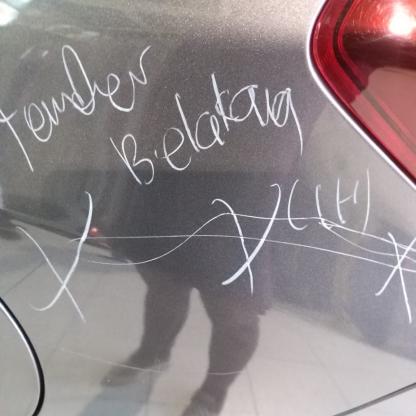 Fender
Belakang
X X (LH) X